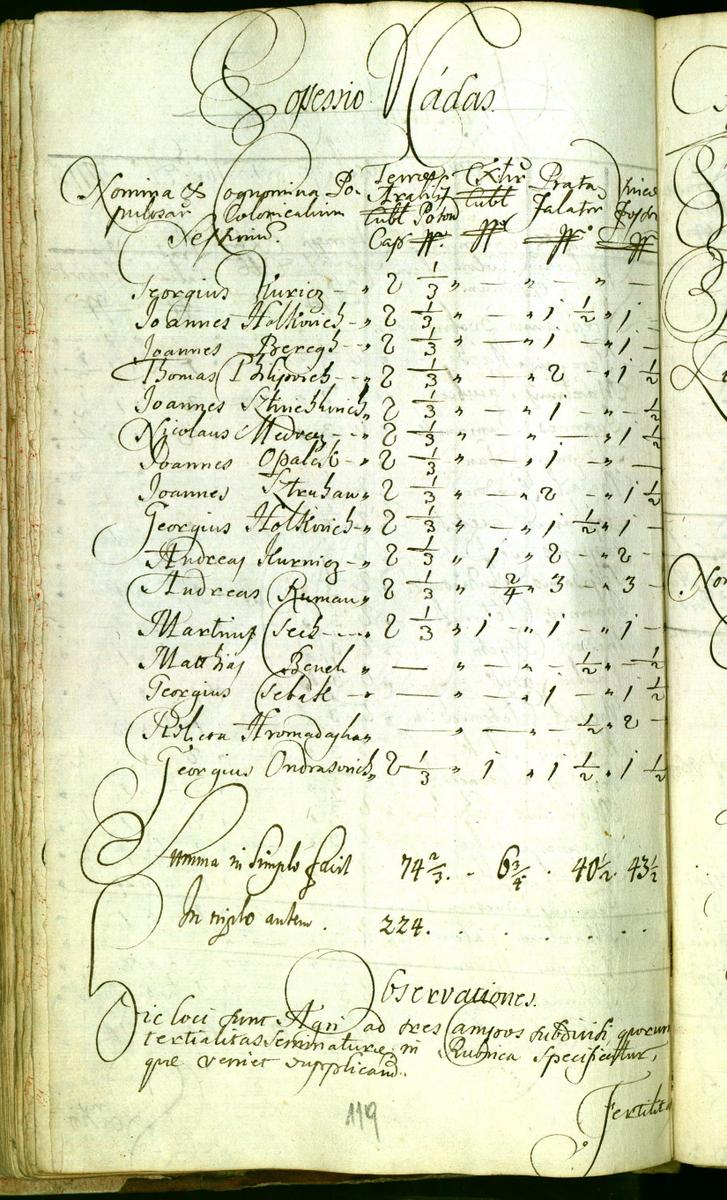 Possessio Nádas.
Nomina & Cognomina Po- Terrae Extir Prata Vinea
pulosar Colonicalium Arabil Cubl Falator Fossor
Sessionu. Cubl Poson
Capː
Georgius Kuricz - „ 2 1/3 „ — „ - „ —
Joannes Holkovich - „ 2 1/3 „ — „ 1 1/2 „ 1 —
Joannes Beregh - „ 2 1/3 „ — „ 1 - „ 1 —
Thomas Philipovich - „ 2 1/3 „ — „ 2 - „ 1 1/2
Joannes „ 2 1/3 „ - „ 1 - „ - 1/2
Nicolaus Medvecz - „ 2 1/3 „ - „ — „ 1 1/2
Joannes Opalek - „ 2 1/3 „ - „ 1 - „ —
Joannes Struhar „ 2 1/3 „ — „ 2 - „ 1 1/2
Georgius Holkovich - „ 2 1/3 „ — „ 1 1/2 „ 1 -
Andreas Kurnicz - „ 2 1/3 „ 1 „ 2 - „ 2 -
Andreas Ruman „ 2 1/3 „ 2/4 „ 3 - „ 3 -
Martinus Csech - - - „ 2 1/3 „ 1 - „ 1 - „ 1 -
Matthias Beneh „ — „ — „ - 1/2 „ - 1/2
Georgius — „ — „ 1 - „ 1 1/2
Relicta Hromadagha „ — „ — „ - 1/2 „ 2 -
Georgius Ondrasovich „ 2 1/3 „ 1 „ 1 1/2 „ 1 1/2
Summa in Simplo facit 74 2/3 . . 6 3/4 . 40 1/2 43 1/2
In triplo autem . 224. . . . .
Observationes.
Hic loci sunt Agri ad tres Campos subdivisi, quorum
tertialitas seminaturae in Rubrica Specificatur,
que veniet supplicand.
119
Fertilita